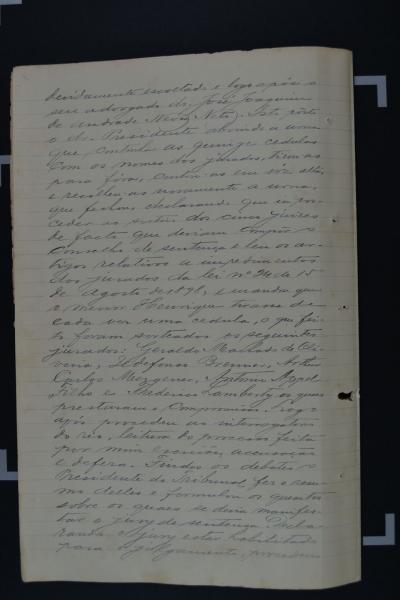 devidamente escoltado e logo após o
seu advogado dr. José Joaquim
de Andrade Neves Neto. Isto posto
o dr. Presidente abrindo a urna
que continha as quinze cedulas
com os nomes dos jurados, tirou-as
para fóra, contou-as em voz alta
e recolheu-as novamente a urna,
que fechou, declarando que ia pro-
ceder ao sorteio dos cinco juizes
de facto que deviam compôr o
Conselho de sentença e leu os ar-
tigos relativos a impedimentos
dos jurados da lei nº 94 de 15
de Agosto de 1898, e mandou que
o menor Henrique tirasse de
cada vez uma cedula, o que fei-
to foram sorteados os seguintes
jurados: Geraldo Machado de Oli-
veira, Ildefonso Brenner, Arthur
Carlos, Antonio Appel
Filho e Frederico os quaes
prestaram o compromisso. Logo
após procedeu ao interrogatorio
do réo, leitura do processo feita
por mim escrivão, accusação
e defeza. Findos os debates o
Presidente do Tribunal fez o resu-
mo delles e formulou os quesitos
sobre os quaes se devia manifes-
tar o jury de sentença. Decla-
rando o jury estar habilitado
para o julgamento, procedeu